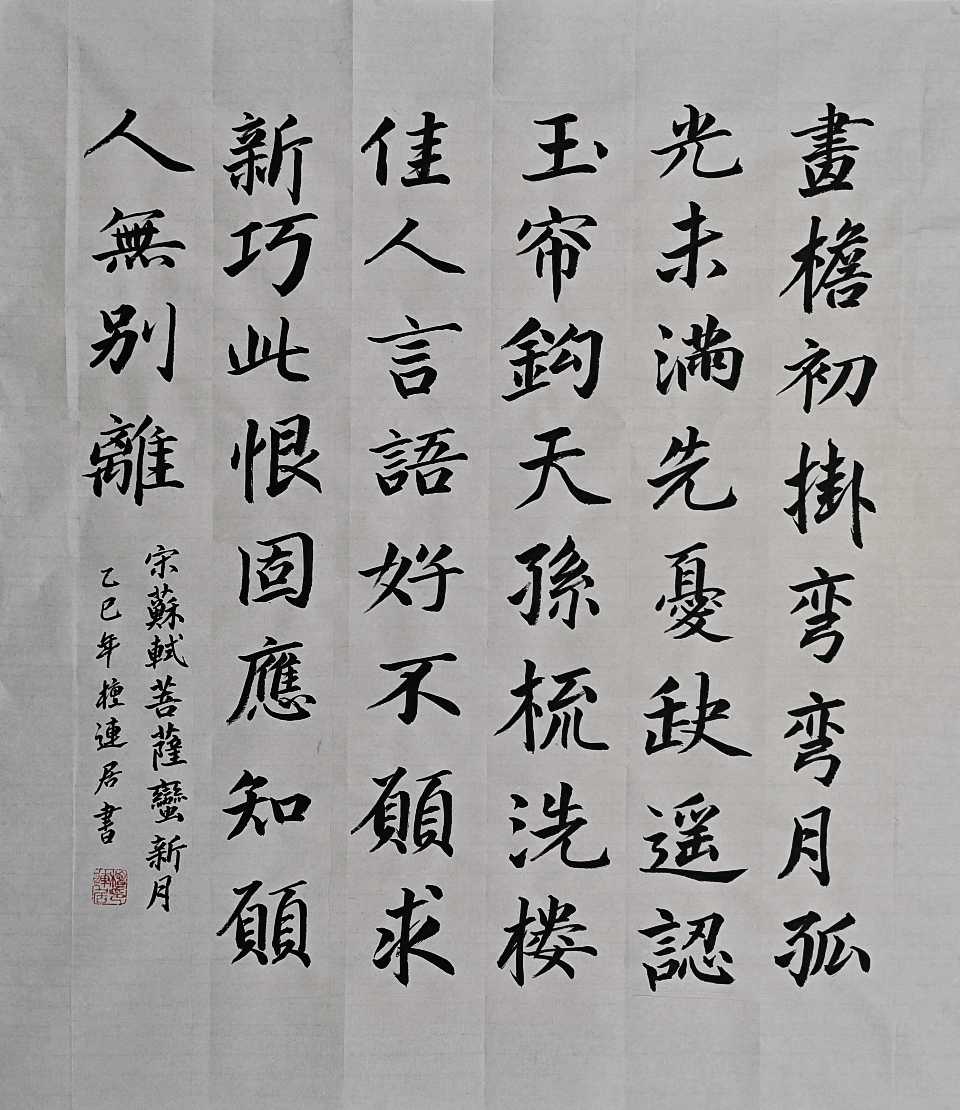 畫檐初掛弯弯月孤
光未滿先憂缺遥認
玉帘鈎天孫梳洗楼
佳人言語好不願求
新巧此恨固應知願
人無別離
宋蘇軾菩薩蠻新月
乙巳年檀連居書